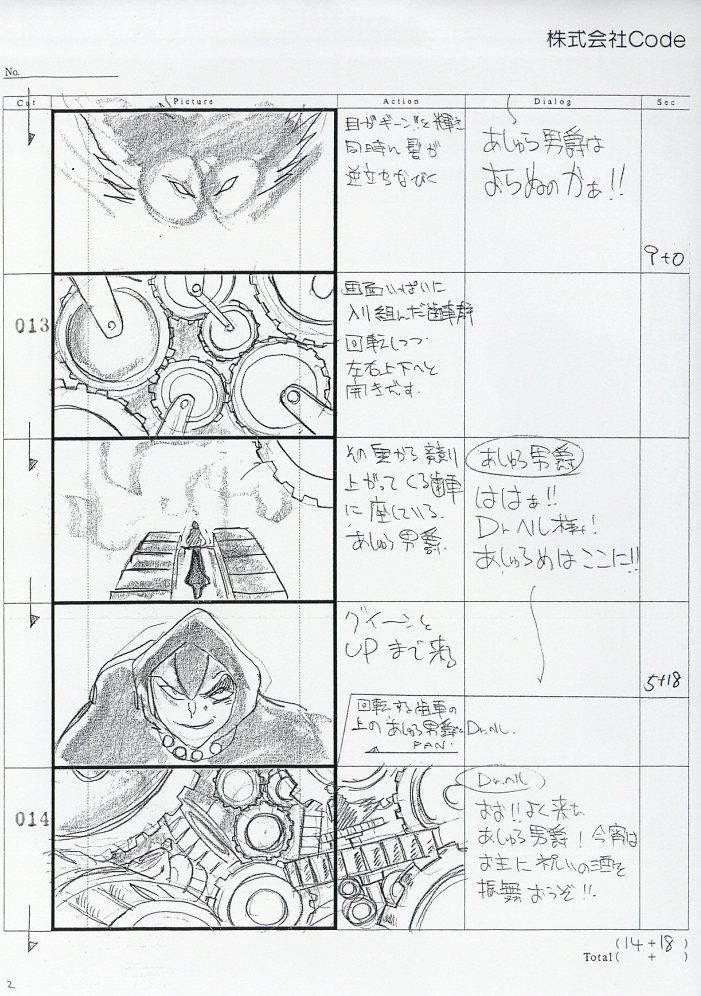 株式会社Code
No.
Cut Picture Action Dialog Sec
目がギーン!と輝き
同時に髪が
逆立ちなびく
あしゅら男爵は
おらぬのかぁ!!
9+0
013
画面いっぱいに
入り組んだ歯車群
回転しつつ
左右上下へと
開きだす.
その奥から競り
上がってくる歯車
に座している.
あしゅら男爵.
あしゅら男爵
ははぁ!!
Dr.ヘル様!
あしゅらめはここに!!
グイーンと
UPまで来る
5+18
回転する歯車の
上のあしゅら男爵とDr.ヘル.
PAN.
014
Dr.ヘル
おお!!よく来た
あしゅら男爵!今宵は
お主に祝いの酒を
振舞おうぞ!!
(14+18)
Total( + )
2